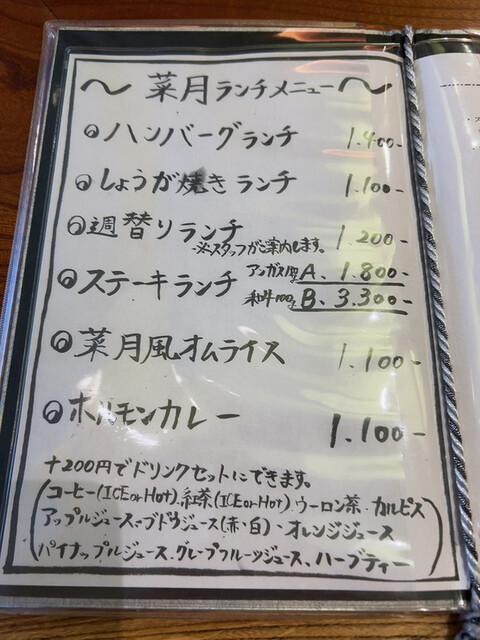 ～菜月ランチメニュー～
ハンバーグランチ 1.400-
しょうが焼きランチ 1.100-
週替りランチ 1.200-
※スタッフがご案内します。
ステーキランチ アンガス A、1.800-
和牛100g B、3.300-
菜月風オムライス 1.100-
ホルモンカレー 1.100-
+200円でドリンクセットにできます。
(コーヒー(ICE or Hot)、紅茶(ICE or Hot)、ウーロン茶、カルピス
アップルジュース、ブドウジュース(赤・白)、オレンジジュース
パイナップルジュース、グレープフルーツジュース、ハーブティー)